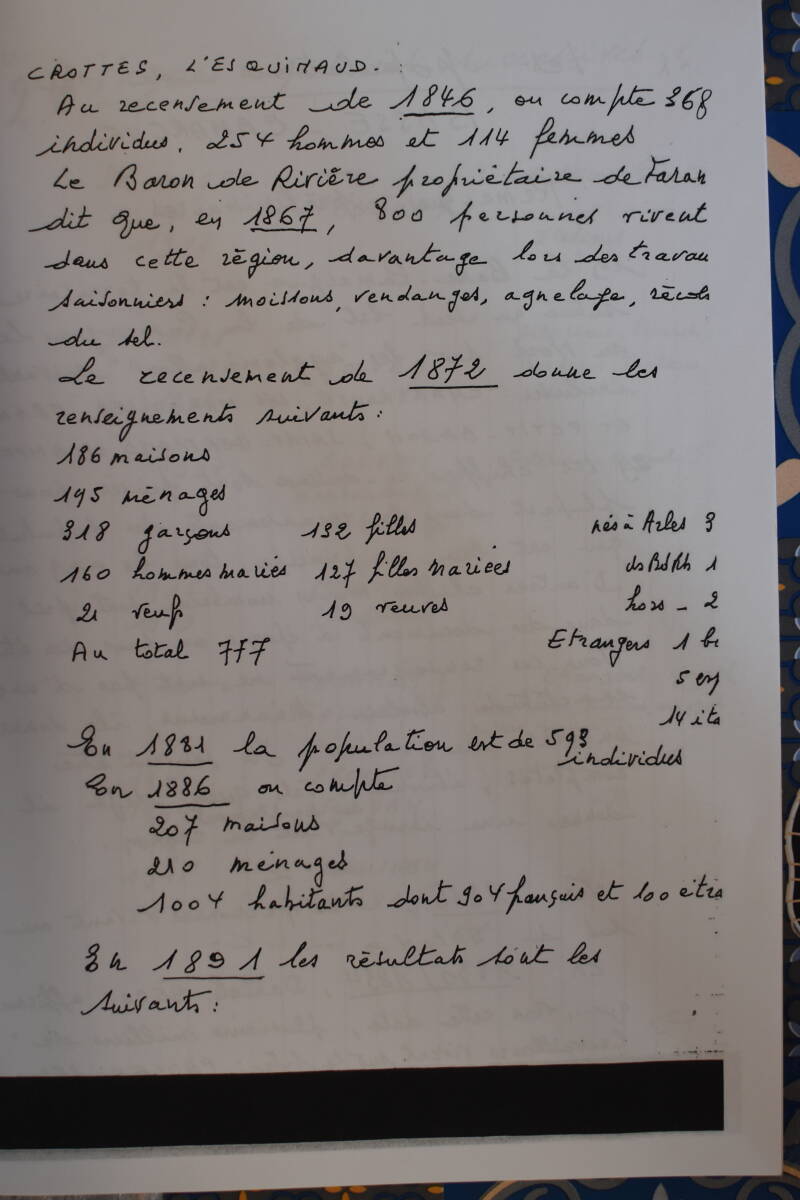 CROTTES, L'ESQUINAUD. :
Au recensement de 1846, on compte 368
individus, 254 hommes et 114 femmes
Le Baron de Rivière propriétaire de Faran
dit que, en 1867, 800 personnes vivent
dans cette région, davantage lors des travau
saisonniers : moissons, vendanges, agnelage, récol
du sel.
Le recensement de 1872 donne les
renseignements suivants :
186 maisons
195 ménages
318 garçons 132 filles nés à Arles 3
160 hommes mariés 127 filles mariées ds BdRh 1
21 veufs 19 veuves hors - 2
Au total 777 Etrangers 1 be
5 esp
14 ita
En 1881 la population est de 593
individus
En 1886 on compte
207 maisons
210 ménages
1004 habitants dont 904 français et 100 étra
En 1891 les résultats sont les
suivants :